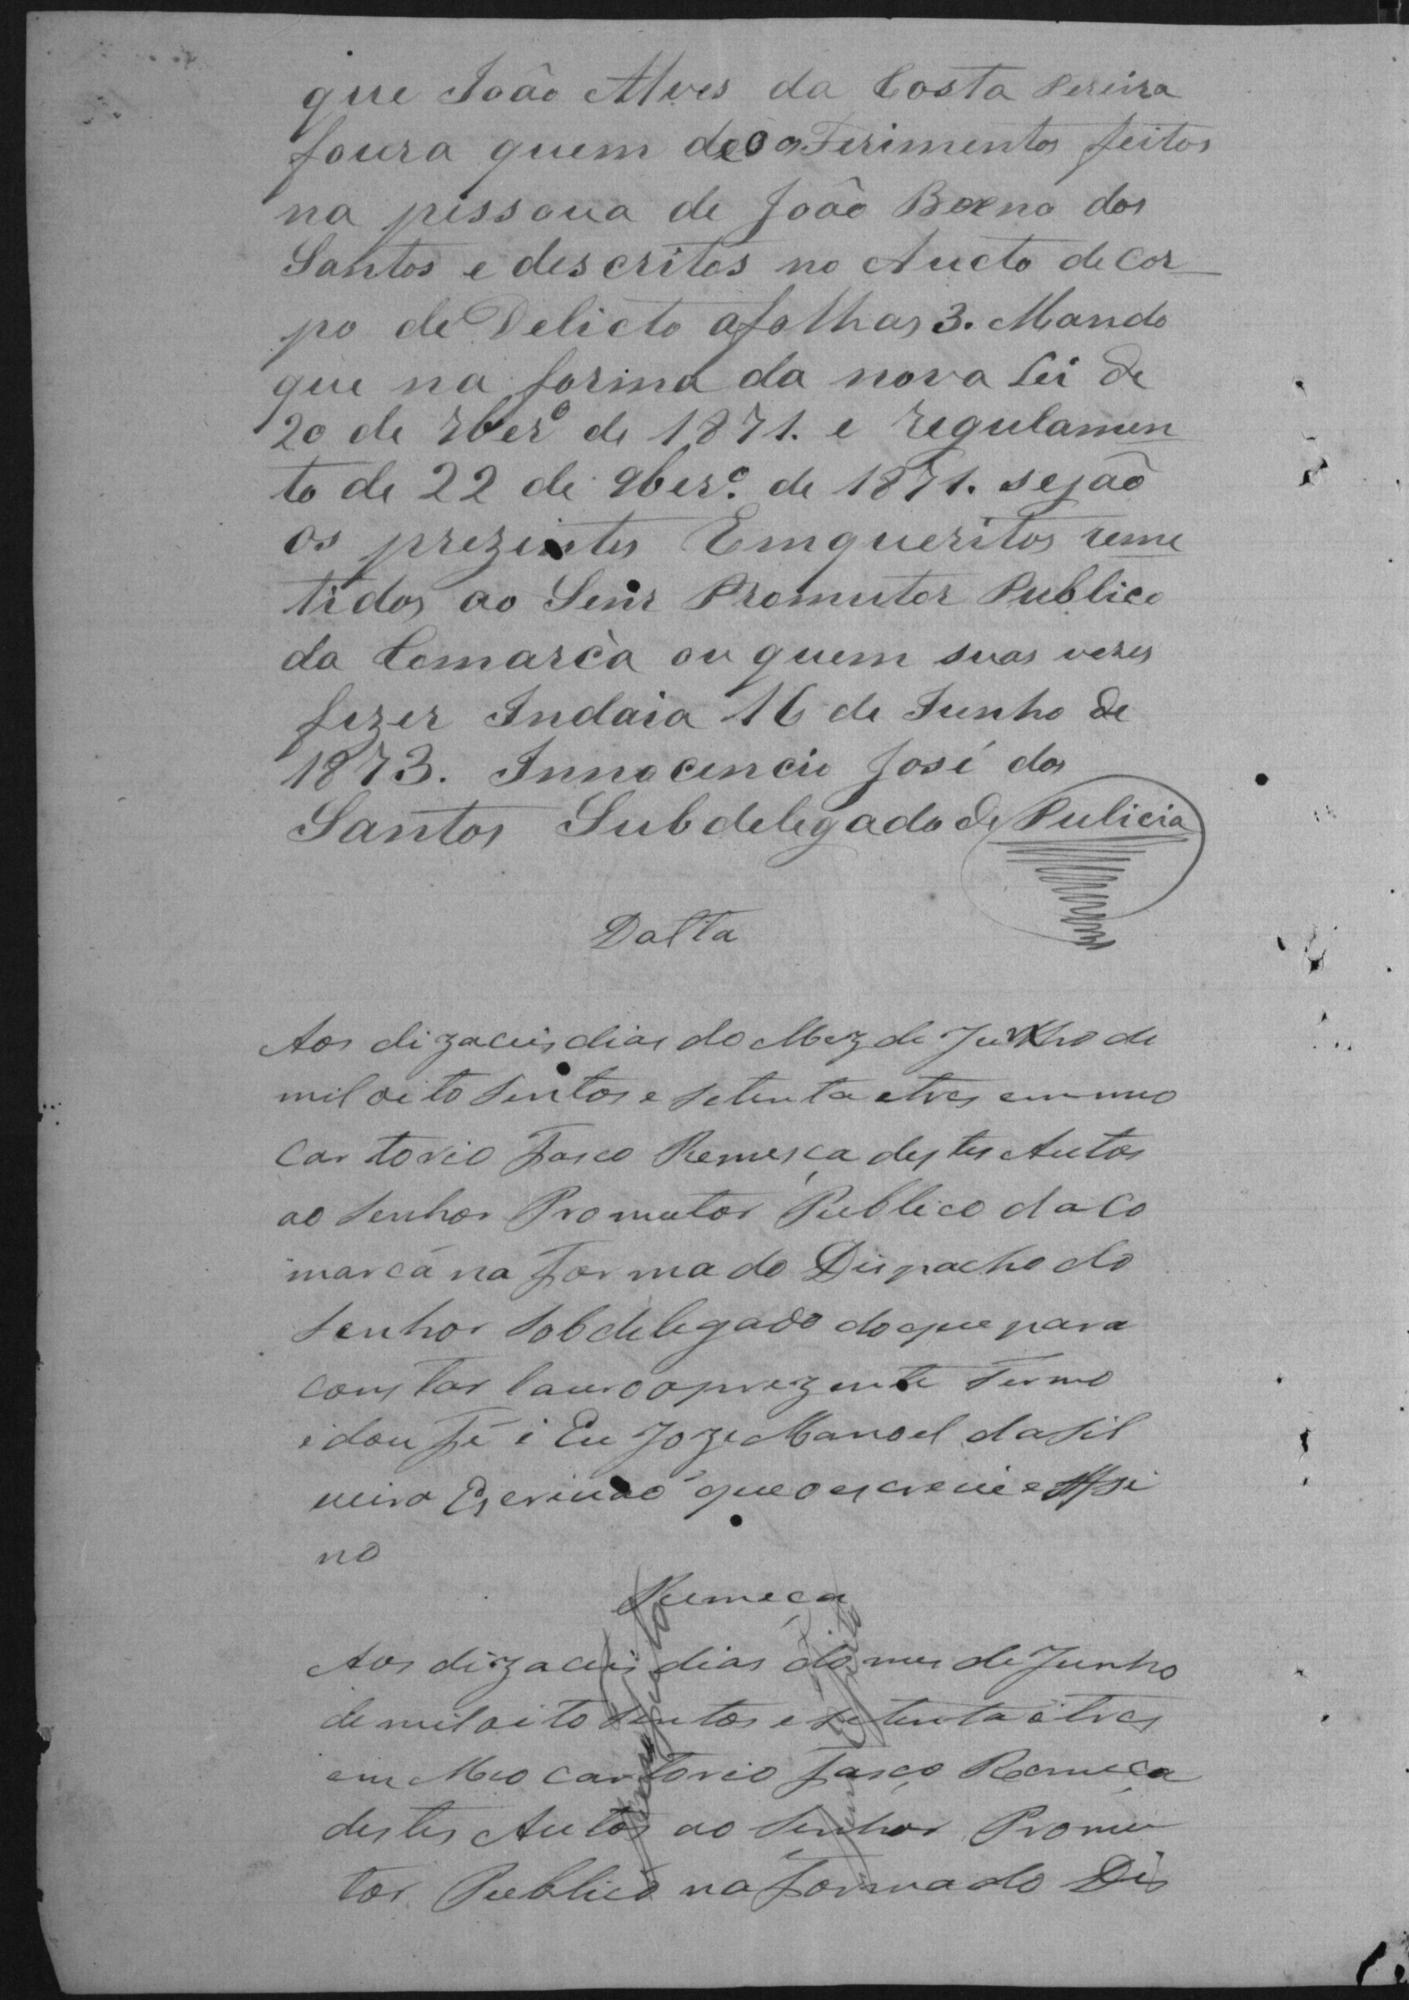 que João Alves da Costa Pereira
foura quem deo os Ferimentos feitos
na pissoua de João Boeno dos
Santos e descritos no Aucto de cor
po de Delicto afolhas 3. Mando
que na forma da nova Lei de
20 de 7ber.º de 1871. e regulamen
to de 22 de 9ber.º de 1871. sejaõ
os prezintes Emqueritos reme
tidos ao Senr Promutor Publico
da Comarca ou quem suas vezes
fizer Indaia 16 de Junho de
1873. Innocencio José dos
Santos Subdelegado de Pulicia
Datta
Aos dizaceis dias do Mez de Junho de
mil oito Sentos e Setenta etres em meo
Cartorio faso Remeça destes Autos
ao Senhor Promutor Publico da Co
marca na forma do Dispacho do
Senhor Sobdelegado do que para
constar lavro o prezente Termo
e dou fé i Eu Joze Manoel da Sil
veira Escrivaõ que o escrevi e Assi
no
Remeça
Aos dizaceis dias do mes de Junho
de mil oito Sentos e Setenta e tres
em Meo Cartorio faço Remeça
destes Autos ao Senhor Promu
tor Publico na forma do Dis